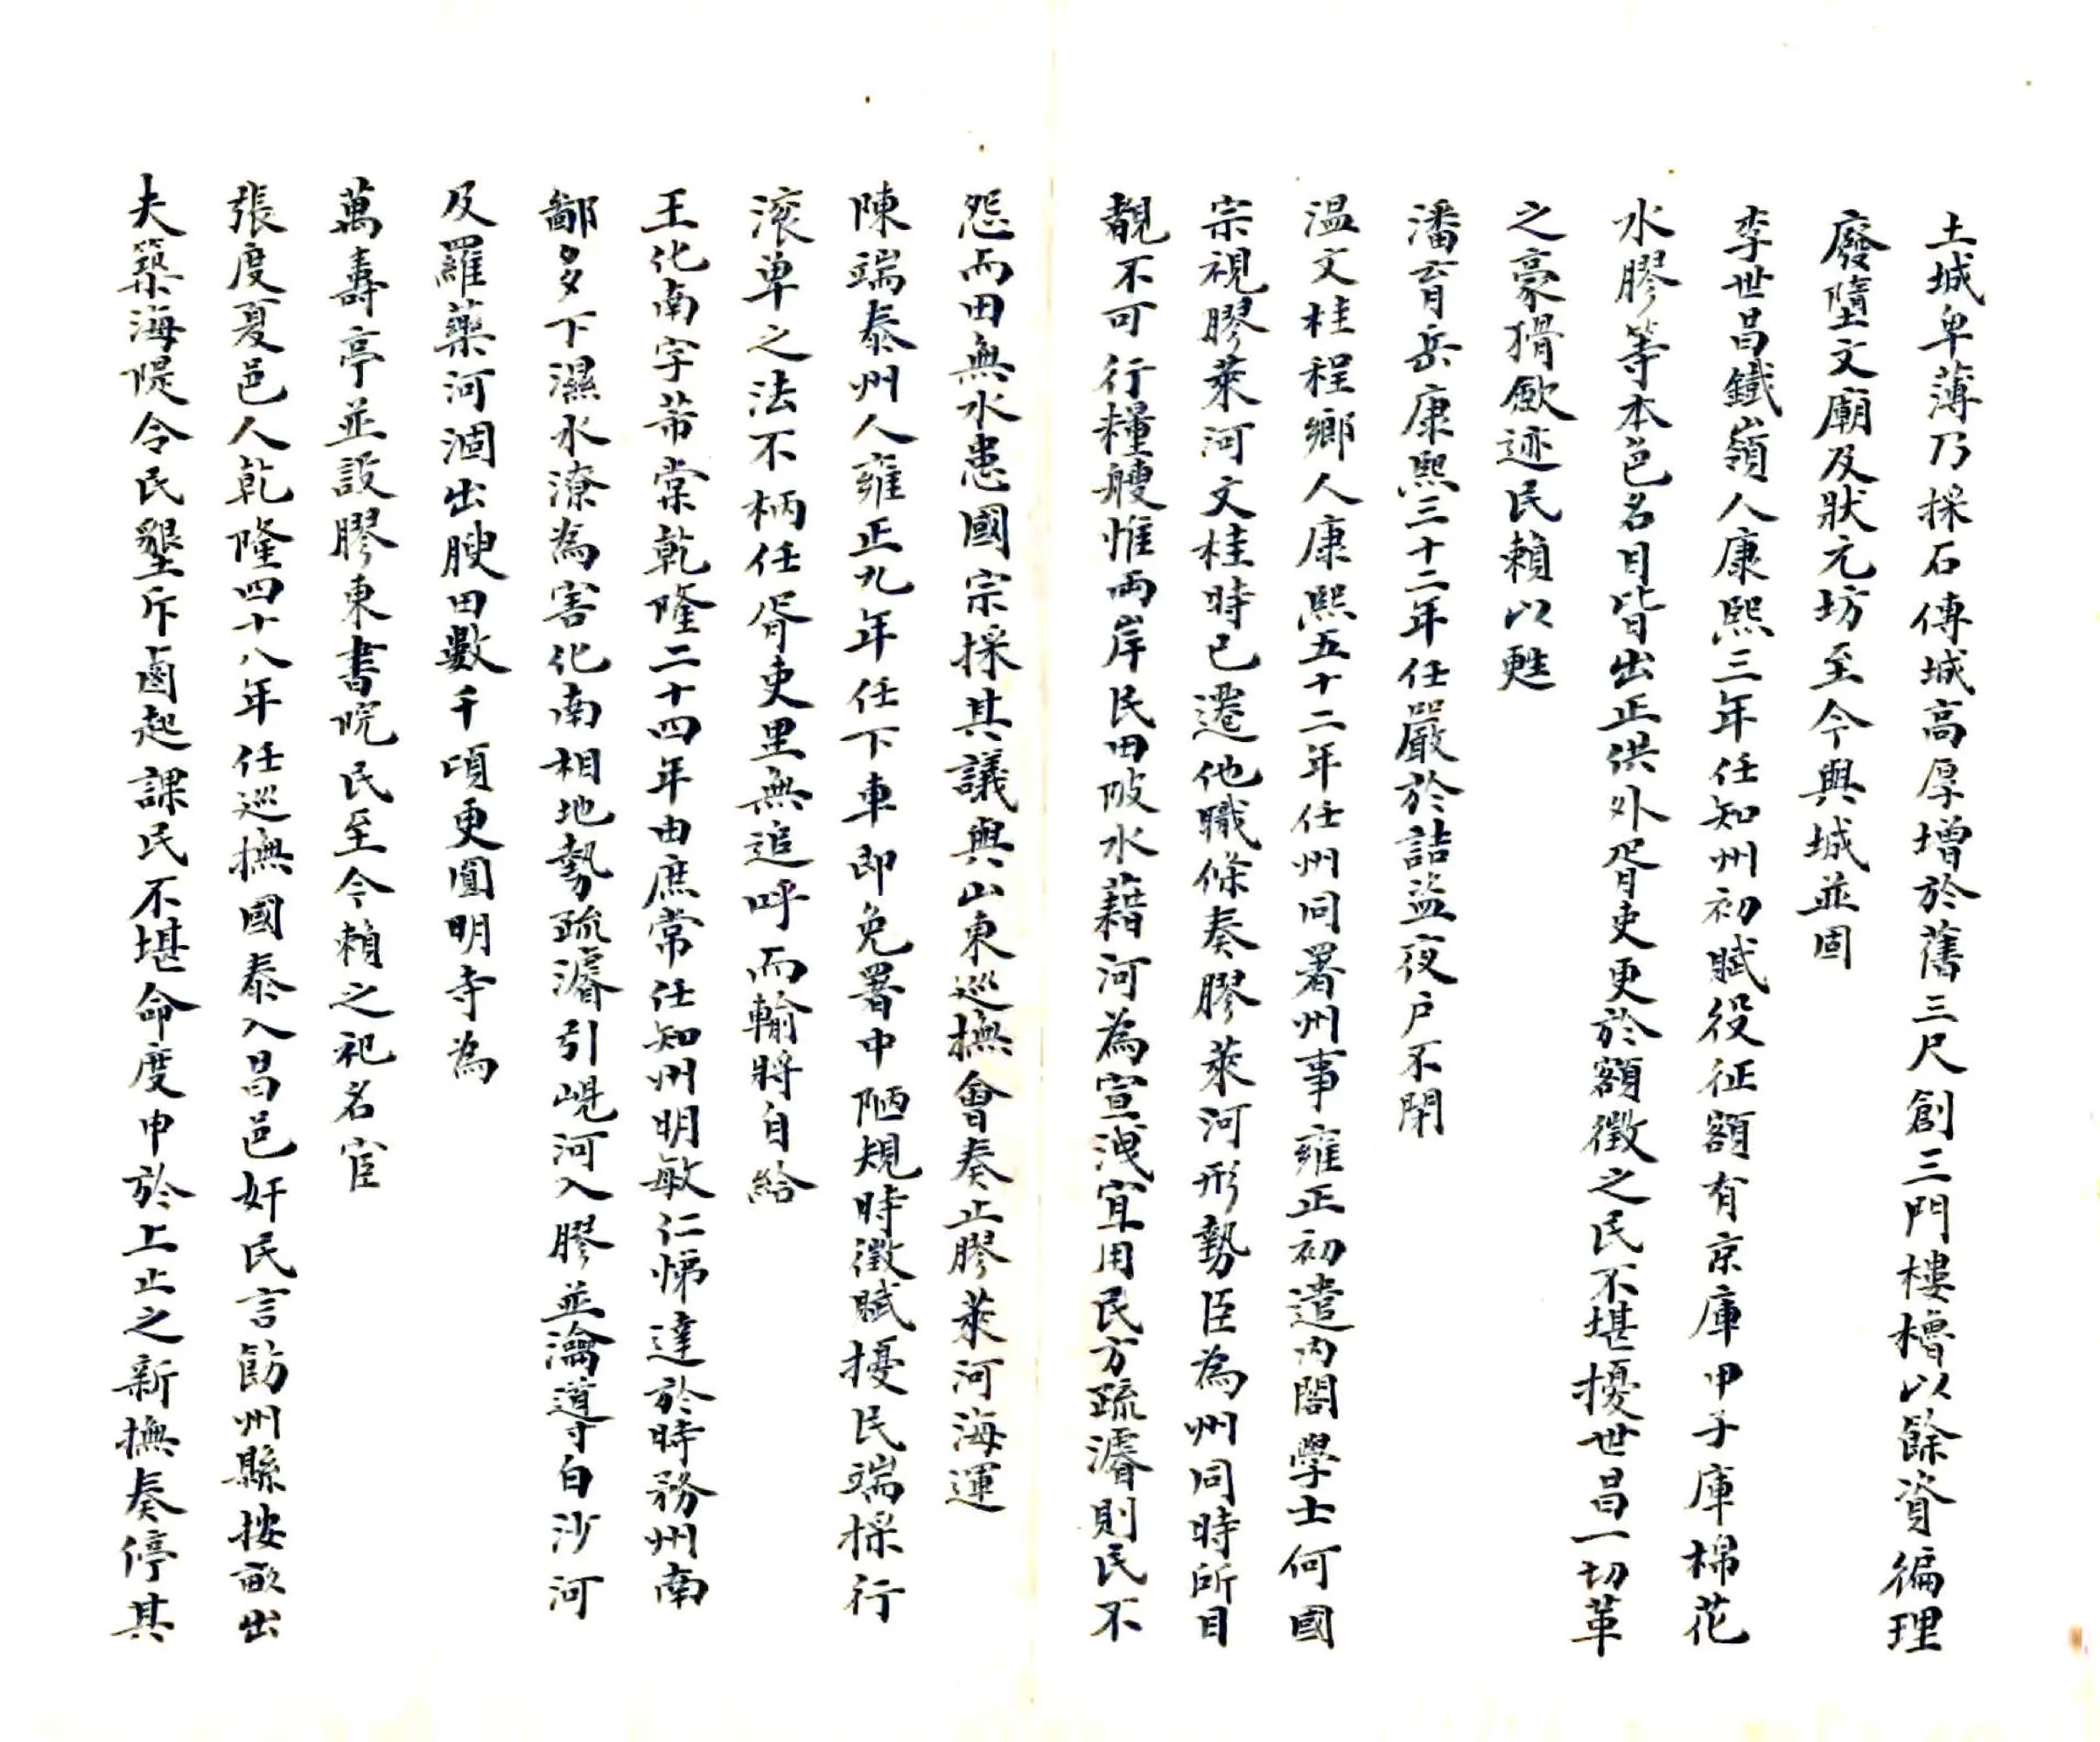 土城卑薄乃採石傅城高厚增於舊三尺創三門樓櫓以餘資徧理
廢墮文廟及狀元坊至今與城並固
李世昌鐵嶺人康熙三年任知州初賦役征額有京庫甲子庫棉花
水膠等本色名目皆出正供外胥吏更於額徵之民不堪擾世昌一切革
之豪猾歛迹民賴以甦
潘育岳康熙三十二年任嚴於詰盜夜戶不閉
温文桂程鄉人康熙五十二年任州同署州事雍正初遣內閣學士何國
宗視膠萊河文桂時已遷他職條奏膠萊河形勢臣為州同時所目
覩不可行糧艘惟兩岸民田陂水藉河為宣洩宜用民力疏濬則民不
怨而田無水患國宗採其議與山東巡撫會奏止膠萊河海運
陳端泰州人雍正九年任下車即免署中陋規時徵賦擾民端採行
滚单之法不柄任胥吏里無追呼而輸將自給
王化南字芾棠乾隆二十四年由庶常任知州明敏仁悌達於時務州南
鄙多下濕水潦為害化南相地勢疏濬引峴河入膠並瀹導白沙河
及羅藥河涸出腴田數千頃更圓明寺為
萬壽亭並設膠東書院民至今賴之祀名宦
張度夏邑人乾隆四十八年任巡撫國泰入昌邑奸民言飭州縣按畝出
夫築海隄令民墾斥鹵起課民不堪命度申於上止之新撫奏停其